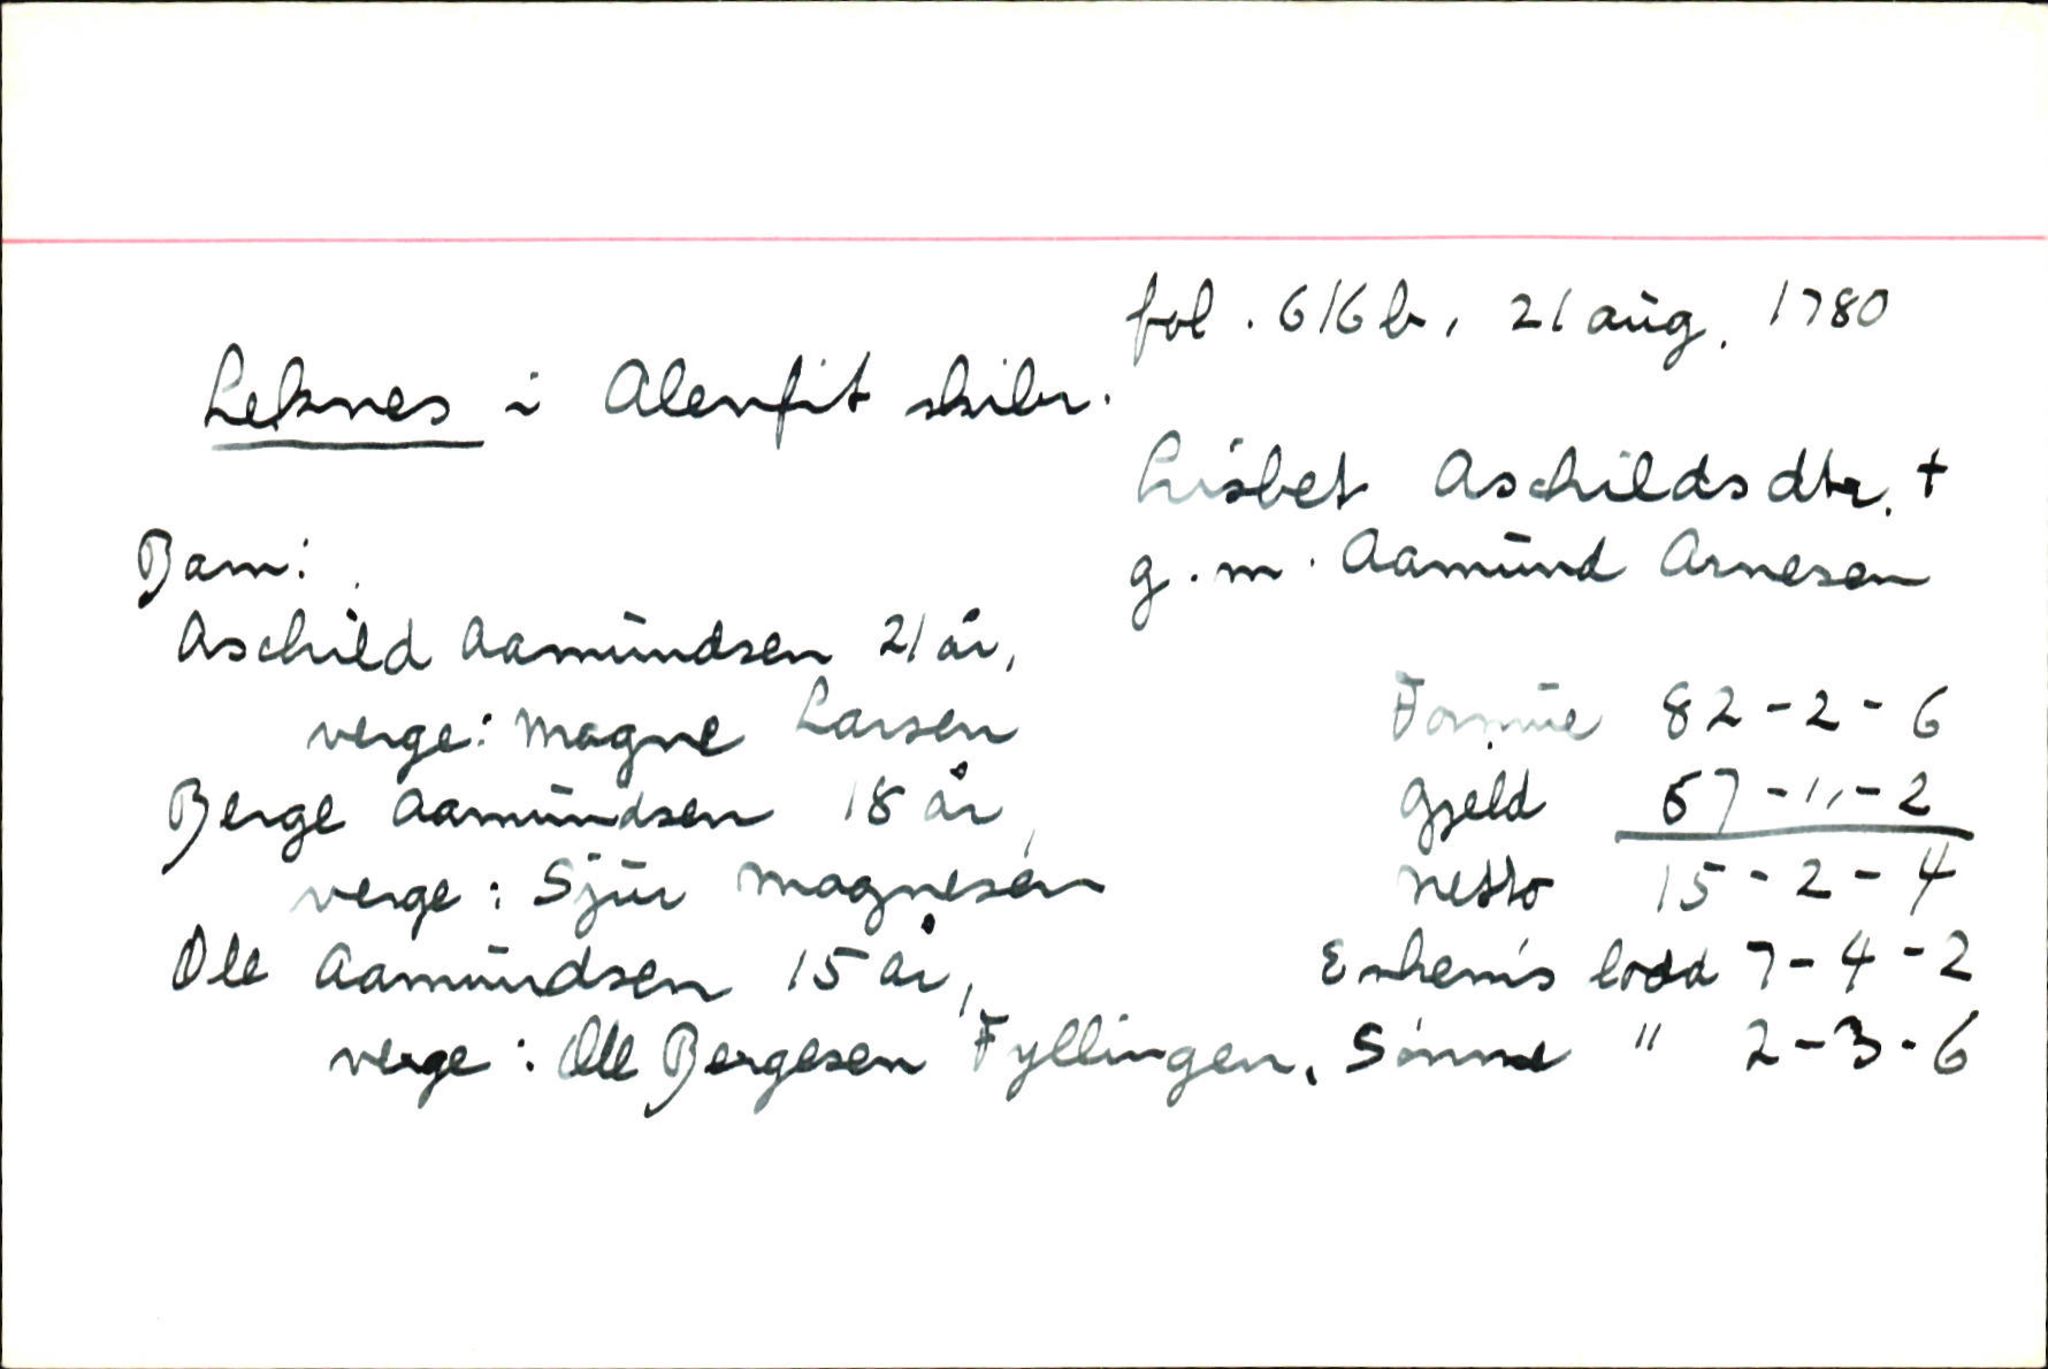 fol. 616b, 21 aug. 1780
Leknes i Alenfit skibr.
Lisbet Aschildsdtr. +
g.m. Aamund Arnesen
Barn:
Aschild Aamundsen 21 år,
verge: Magne Larsen
Berge Aamundsen 18 år,
verge: Sjur Magnesen
Ole Aamundsen 15 år,
verge: Ole Bergesen Fyllingen.
Formue 82-2-6
Gjeld 67-"-2
Netto 15-2-4
Enkem's lodd 7-4-2
Sønne " 2-3-6